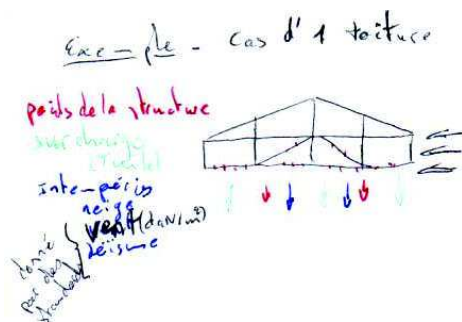 Exemple - cas d'1 toiture
poids de la structure
surcharge
Intempéries
neige
vent (daN/m²)
séisme
donné
par des
standards